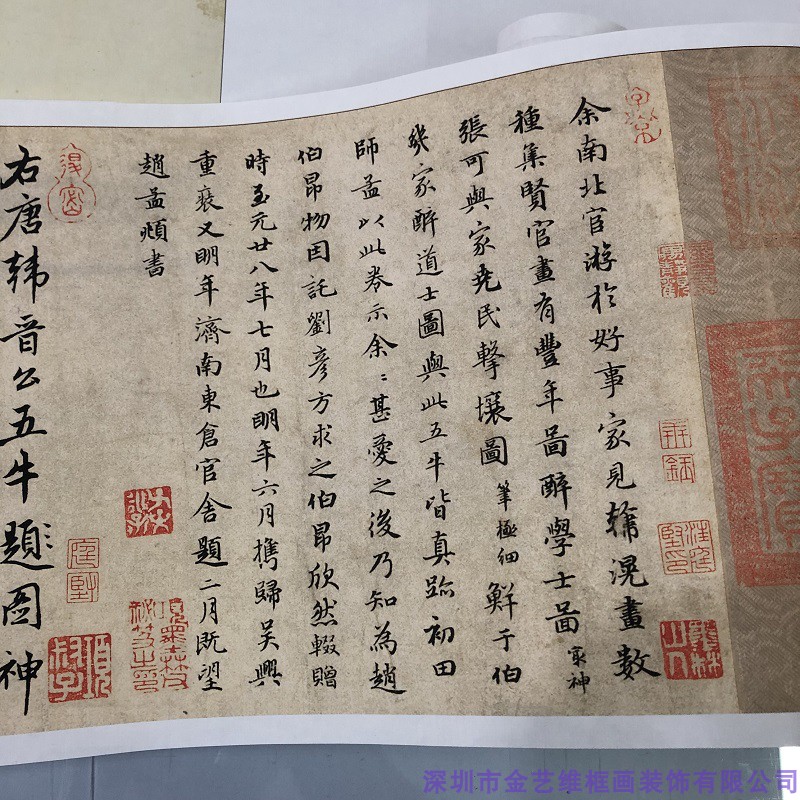 余南北官游於好事家見韓滉畫數
種集賢官畫有豐年啚醉學士啚㝡神
張可與家堯民擊壤圖筆極細鮮于伯
幾家醉道士圖與此五牛皆真跡初田
師孟以此卷示余〻甚愛之後乃知為趙
伯昂物因託劉彥方求之伯昂欣然輟贈
時至元廿八年七月也明年六月攜歸吴興
重裝又明年濟南東倉官舍題二月既望
趙孟頫書
右唐韓晉公五牛圖神
題
深圳市金艺维框画装饰有限公司